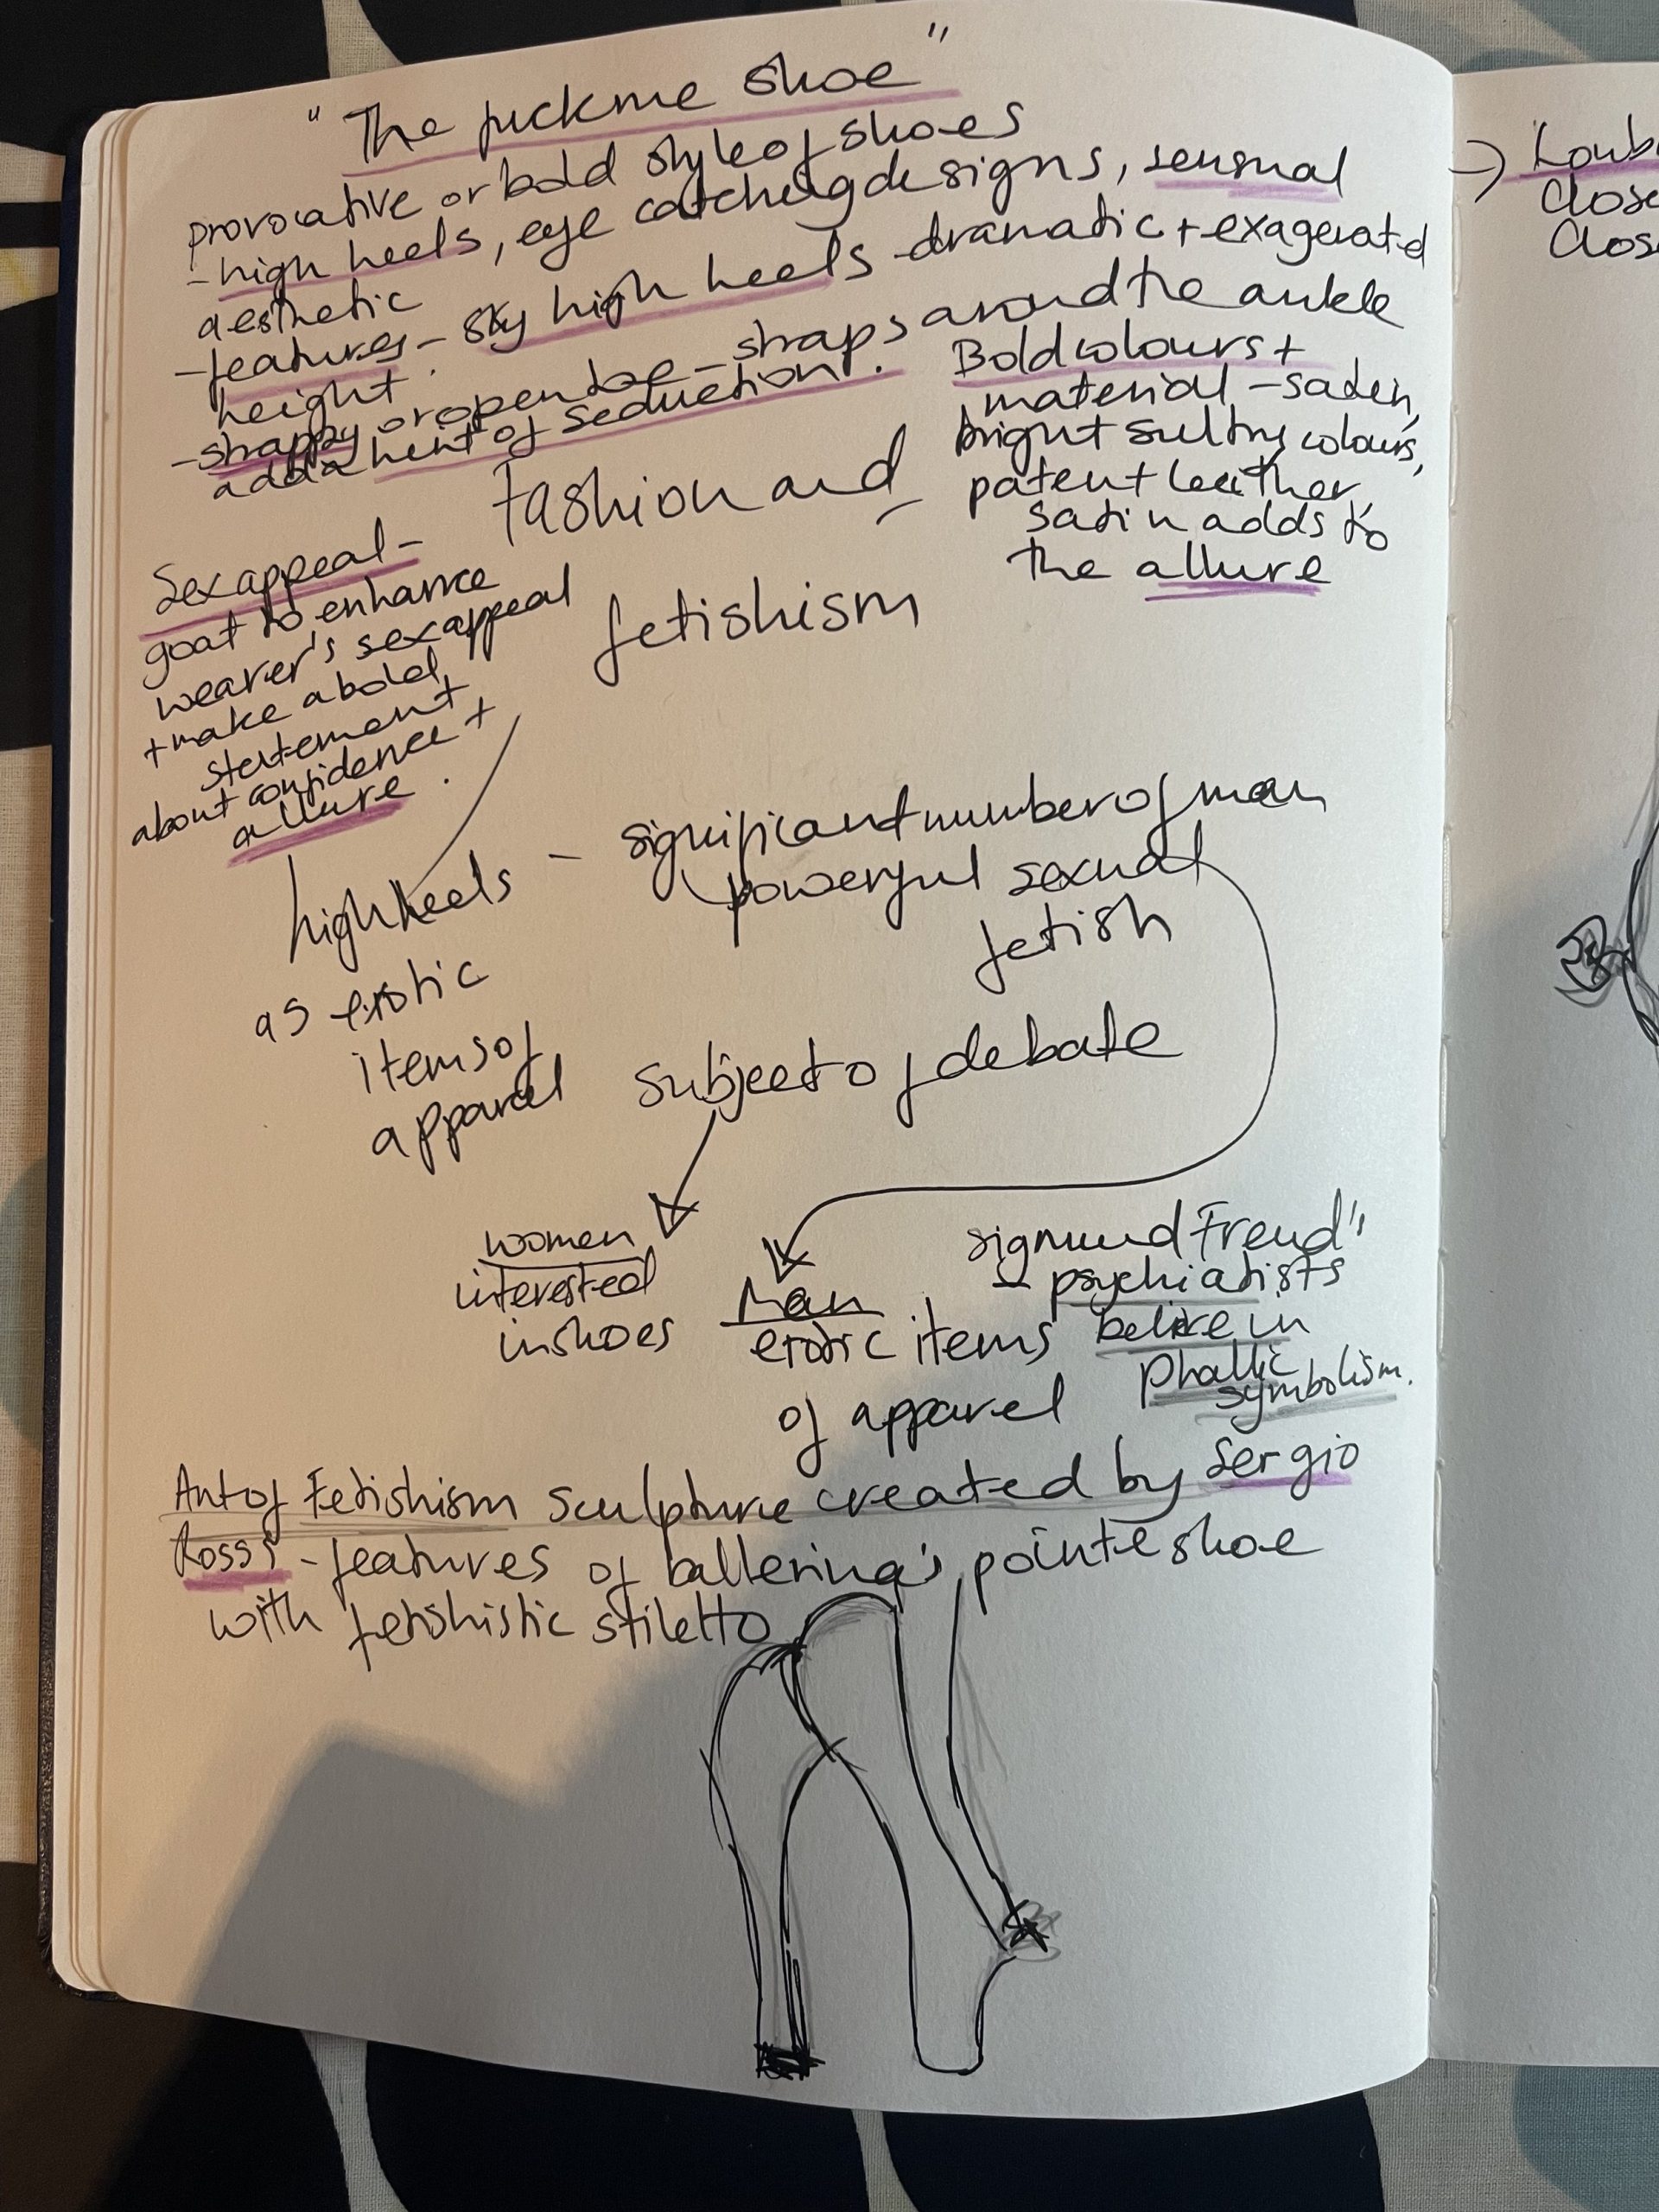 "The fuckme shoe"
provocative or bold style of shoes
- high heels, eye catching designs, sensual
aesthetic
- features - sky high heels - dramatic + exagerated
height.
- strappy or open toe - straps around the ankle
add a hint of seduction.
Bold colours +
material - saden,
bright sultry colours,
patent leather,
satin adds to
the allure
Fashion and
fetishism
Sex appeal -
goat to enhance
wearer's sex appeal
+ make a bold
statement
about confidence +
allure.
high heels - significant number of men
powerful sexual
fetish
as erotic
items of
apparel
Subject of debate
women
interested
in shoes
Men
erotic items
of apparel
sigmund Freud's
- psychiatists
belive in
Phallic
symbolism.
Art of Fetishism sculpture created by Sergio
Rossi - features of ballerina's pointe shoe
with fetishistic stiletto
→
Close
Close